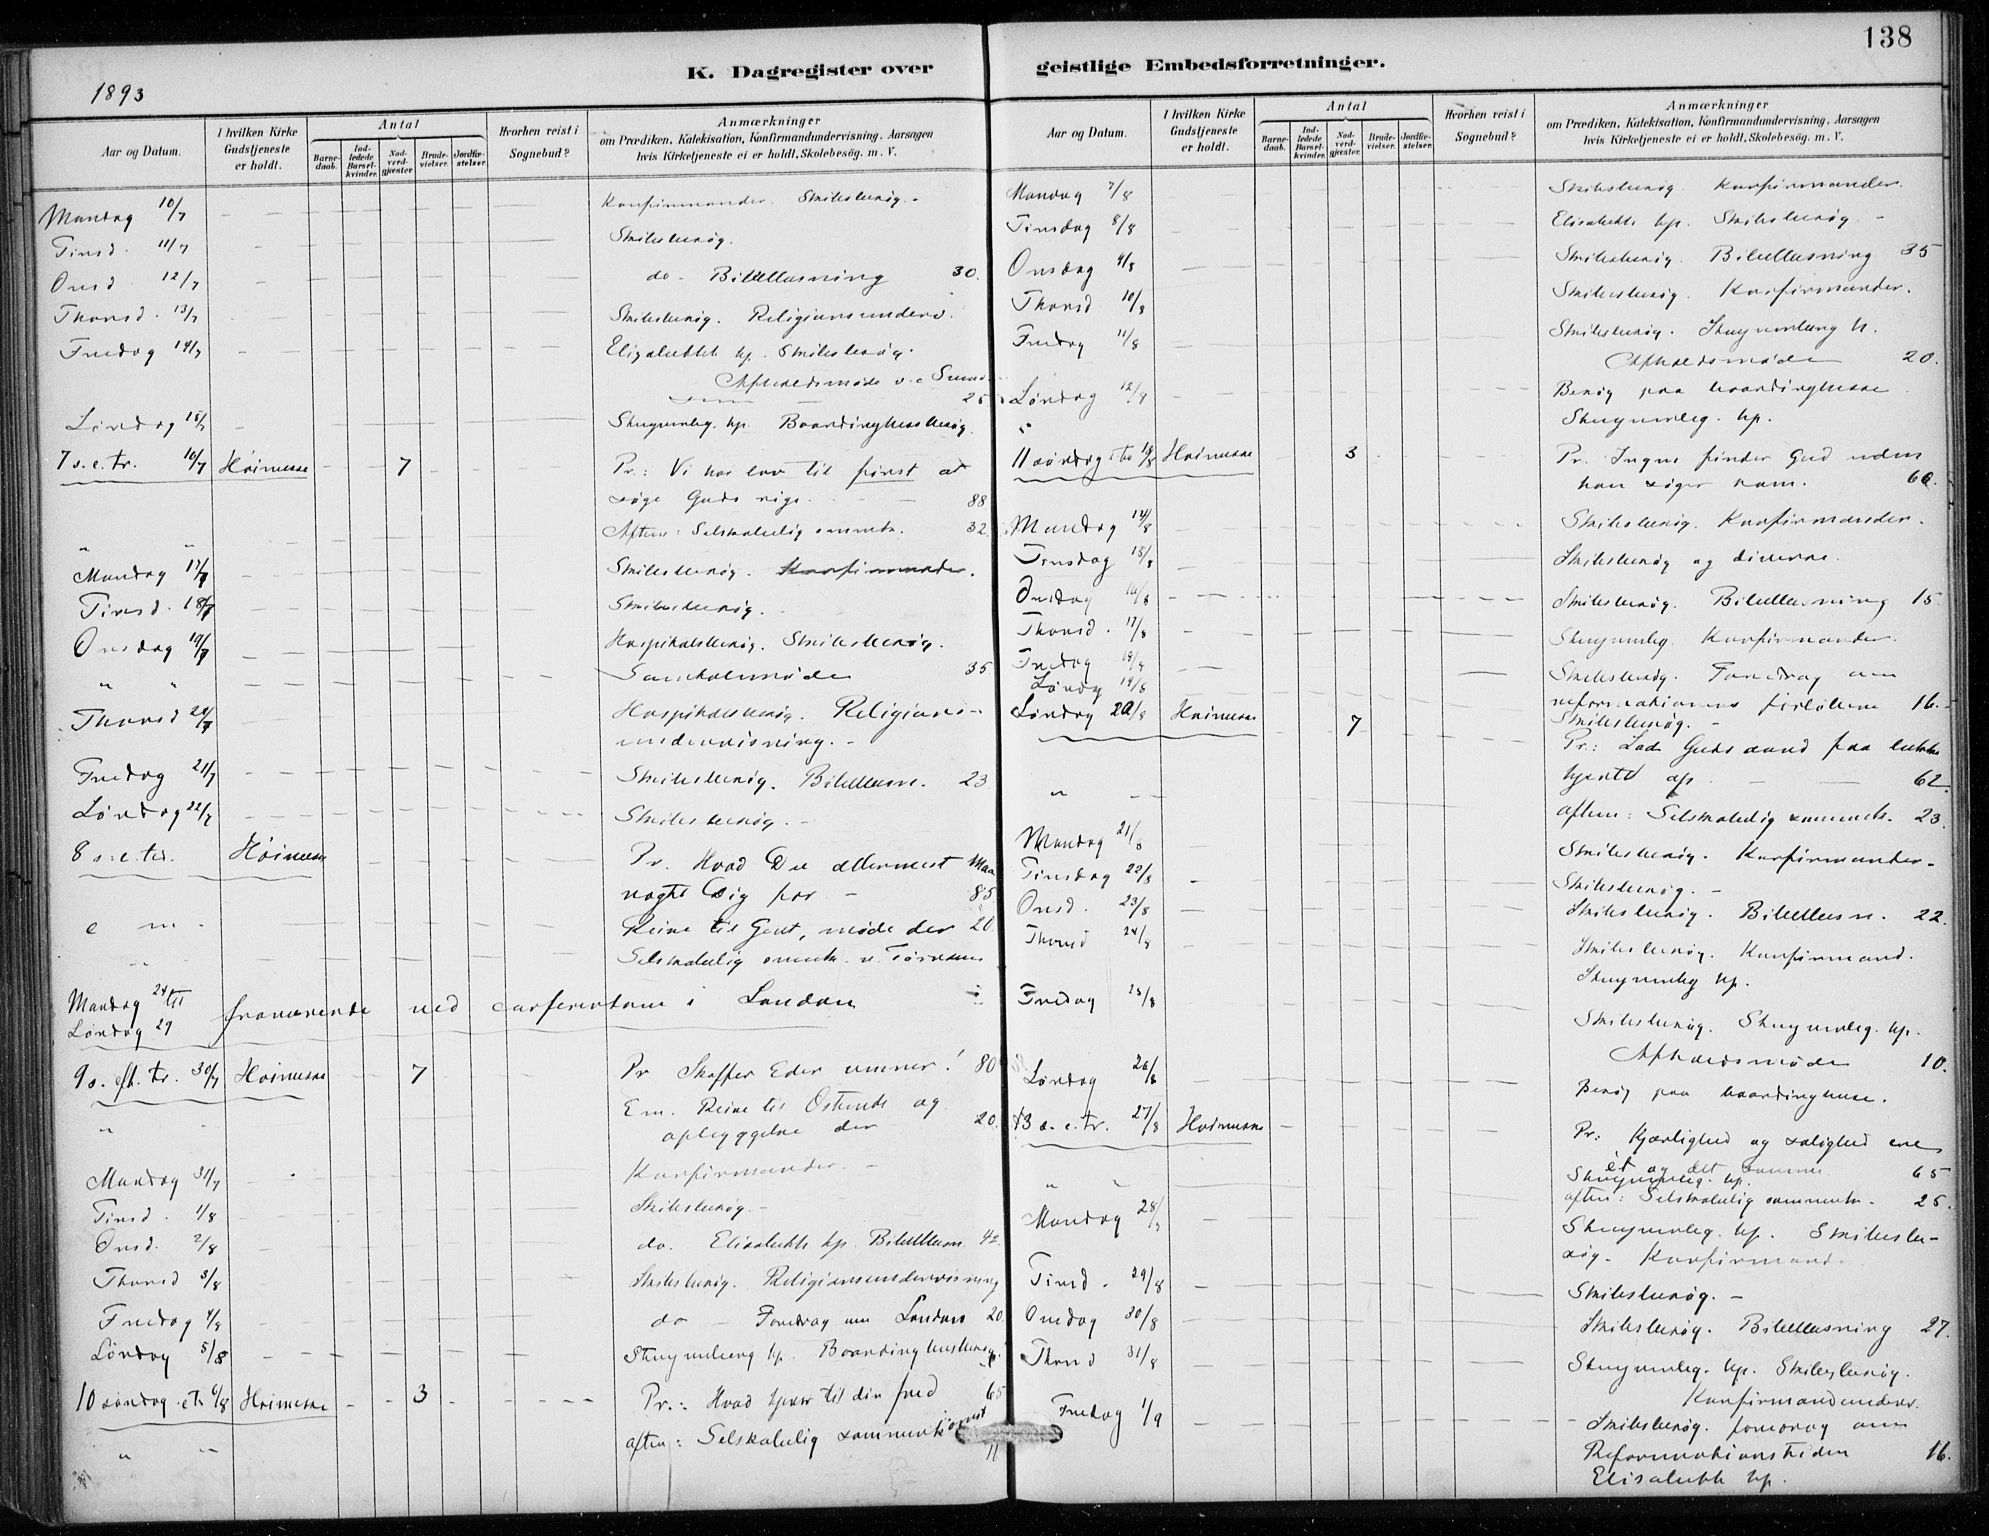 138
K. Dagregister over geistlige Embedsforretninger.
1893
Aar og Datum.
I hvilken Kirke Gudstjeneste er holdt.
Antal
Barnedaab.
Indledede Barselkvinder.
Nadverdgjæster
Brudevielser.
Jordfæstelser.
Hvorhen reist i Sognebud?
Anmærkninger
om Prædiken, Katekisation, Konfirmandundervisning, Aarsagen
hvis Kirketjeneste ei er holdt, Skolebesög. m. V.
Mandag 10/7 Konfirmander. Skibsbesøg.
Tirsd. 11/7 Skibsbesøg.
Onsd. 12/7 do. Bibellæsning 30.
Thorsd. 13/7 Skibsbesøg. Religionsunderv.
Fredag 14/7 Elisabeth hp. Skibsbesøg.
Afholdsmøde
25
Lørdag 15/7 Stuyvenbg. hp. Boardinghusbesøg.
7 s. e. tr. 16/7 Høimesse 7 Pr.: Vi har lov til først at
søge Guds rige. 88
" " Aften: Selskabelig sammk. 32.
Mandag 17/7 Skibsbesøg. Konfirmander.
Tirsd. 18/7 Skibsbesøg.
Onsdag 19/7 Hospitalsbesøg. Skibsbesøg.
" " Samtalemøde 35
Thorsd 20/7 Hospitalsbesøg. Religions-
undervisning.
Fredag 21/7 Skibsbesøg. Bibellæsn. 23
Lørdag 22/7 Skibsbesøg.
8 s. e. tr. Høimesse Pr. Hvad Du allermest maa
vogte Dig for 85
e m. Reise til Gent, møde der 20
Selskabelig smmk.
Mandag 24 til
Lørdag 29 fraværende ved conferentsen i London
9 s. eft. tr. 30/7 Høimesse 7 Pr Skaffer Eder venner! 80
" Em. Reise til Ostende og
opbyggelse der 20.
Mandag 31/7 Konfirmander.
Tirsd. 1/8 Skibsbesøg.
Onsd. 2/8 do. Elisabeth hp. Bibellæsn. 42
Thorsd 3/8 Skibsbesøg. Religionsundervisning
Fredag 4/8 do Foredrag om London 20.
Lørdag 5/8 Stuyvenberg hp. Boardinghusbesøg.
10 søndag e tr 6/8 Høimesse 3 Pr.: Hvad tjener til din fred 65
" " aften: Selskabelig sammenkomst
11
Aar og Datum.
I hvilken Kirke Gudstjeneste er holdt.
Antal
Barnedaab.
Indledede Barselkvinder.
Nadverdgjæster
Brudevielser.
Jordfæstelser.
Hvorhen reist i Sognebud?
Anmærkninger
om Prædiken, Katekisation, Konfirmandundervisning, Aarsagen
hvis Kirketjeneste ei er holdt, Skolebesög. m. V.
Mandag 7/8 Skibsbesøg. Konfirmander.
Tirsdag 8/8 Elisabeth hp. Skibsbesøg.
Onsdag 9/8 Skibsbesøg. Bibellæsning 35
Thorsd 10/8 Skibsbesøg. Konfirmander.
Fredag 11/8 Skibsbesøg. Stuyvenberg h.
Afholdsmøde 20.
Lørdag 12/8 Besøg paa boardinghusene
" Stuyvenbg. hp.
11 søndag e tr 13/8 Høimesse 3 Pr. Ingen finder Gud uden
han søger ham. 60.
Mandag 14/8 Skibsbesøg. Konfirmander.
Tirsdag 15/8 Skibsbesøg og diverse.
Onsdag 16/8 Skibsbesøg. Bibellæsning 15.
Thorsd. 17/8 Stuyvenbg. Konfirmander.
Fredag 18/8 Skibsbesøg. Foredrag om
reformationens forløbere 16.
Lørdag 19/8 Skibsbesøg.
Søndag 20/8 Høimesse 7 Pr.: Lad Guds aand faa lukke
hjertet op 62.
" aften: Selskabelig sammenk. 23.
Mandag 21/8 Skibsbesøg. Konfirmander.
Tirsdag 22/8 Skibsbesøg.
Onsd. 23/8 Skibsbesøg. Bibellæsn. 22.
Thorsd 24/8 Skibsbesøg. Konfirmand.
Stuyvenbg hp.
Fredag 25/8 Skibsbesøg. Stuyvenbg. hp.
Afholdsmøde 10.
Lørdag 26/8 Besøg paa boardinghuse.
13 s. e. tr. 27/8 Høimesse Pr: Kjærlighed og salighed ere
ét og det samme. 65
Stuyvenbg. hp.
" " aften: Selskabelig sammenk. 25.
Mandag 28/8 Stuyvenbg. hp. Skibsbe-
søg. Konfirmand.
Tirsd. 29/8 Skibsbesøg.
Onsdag 30/8 Skibsbesøg. Bibellæsning 27.
Thorsd 31/8 Stuyvenbg. hp. Skibsbesøg.
Konfirmandunderv.
Fredag 1/9 Skibsbesøg. foredrag om
Reformationstiden 16.
Elisabeth hp.